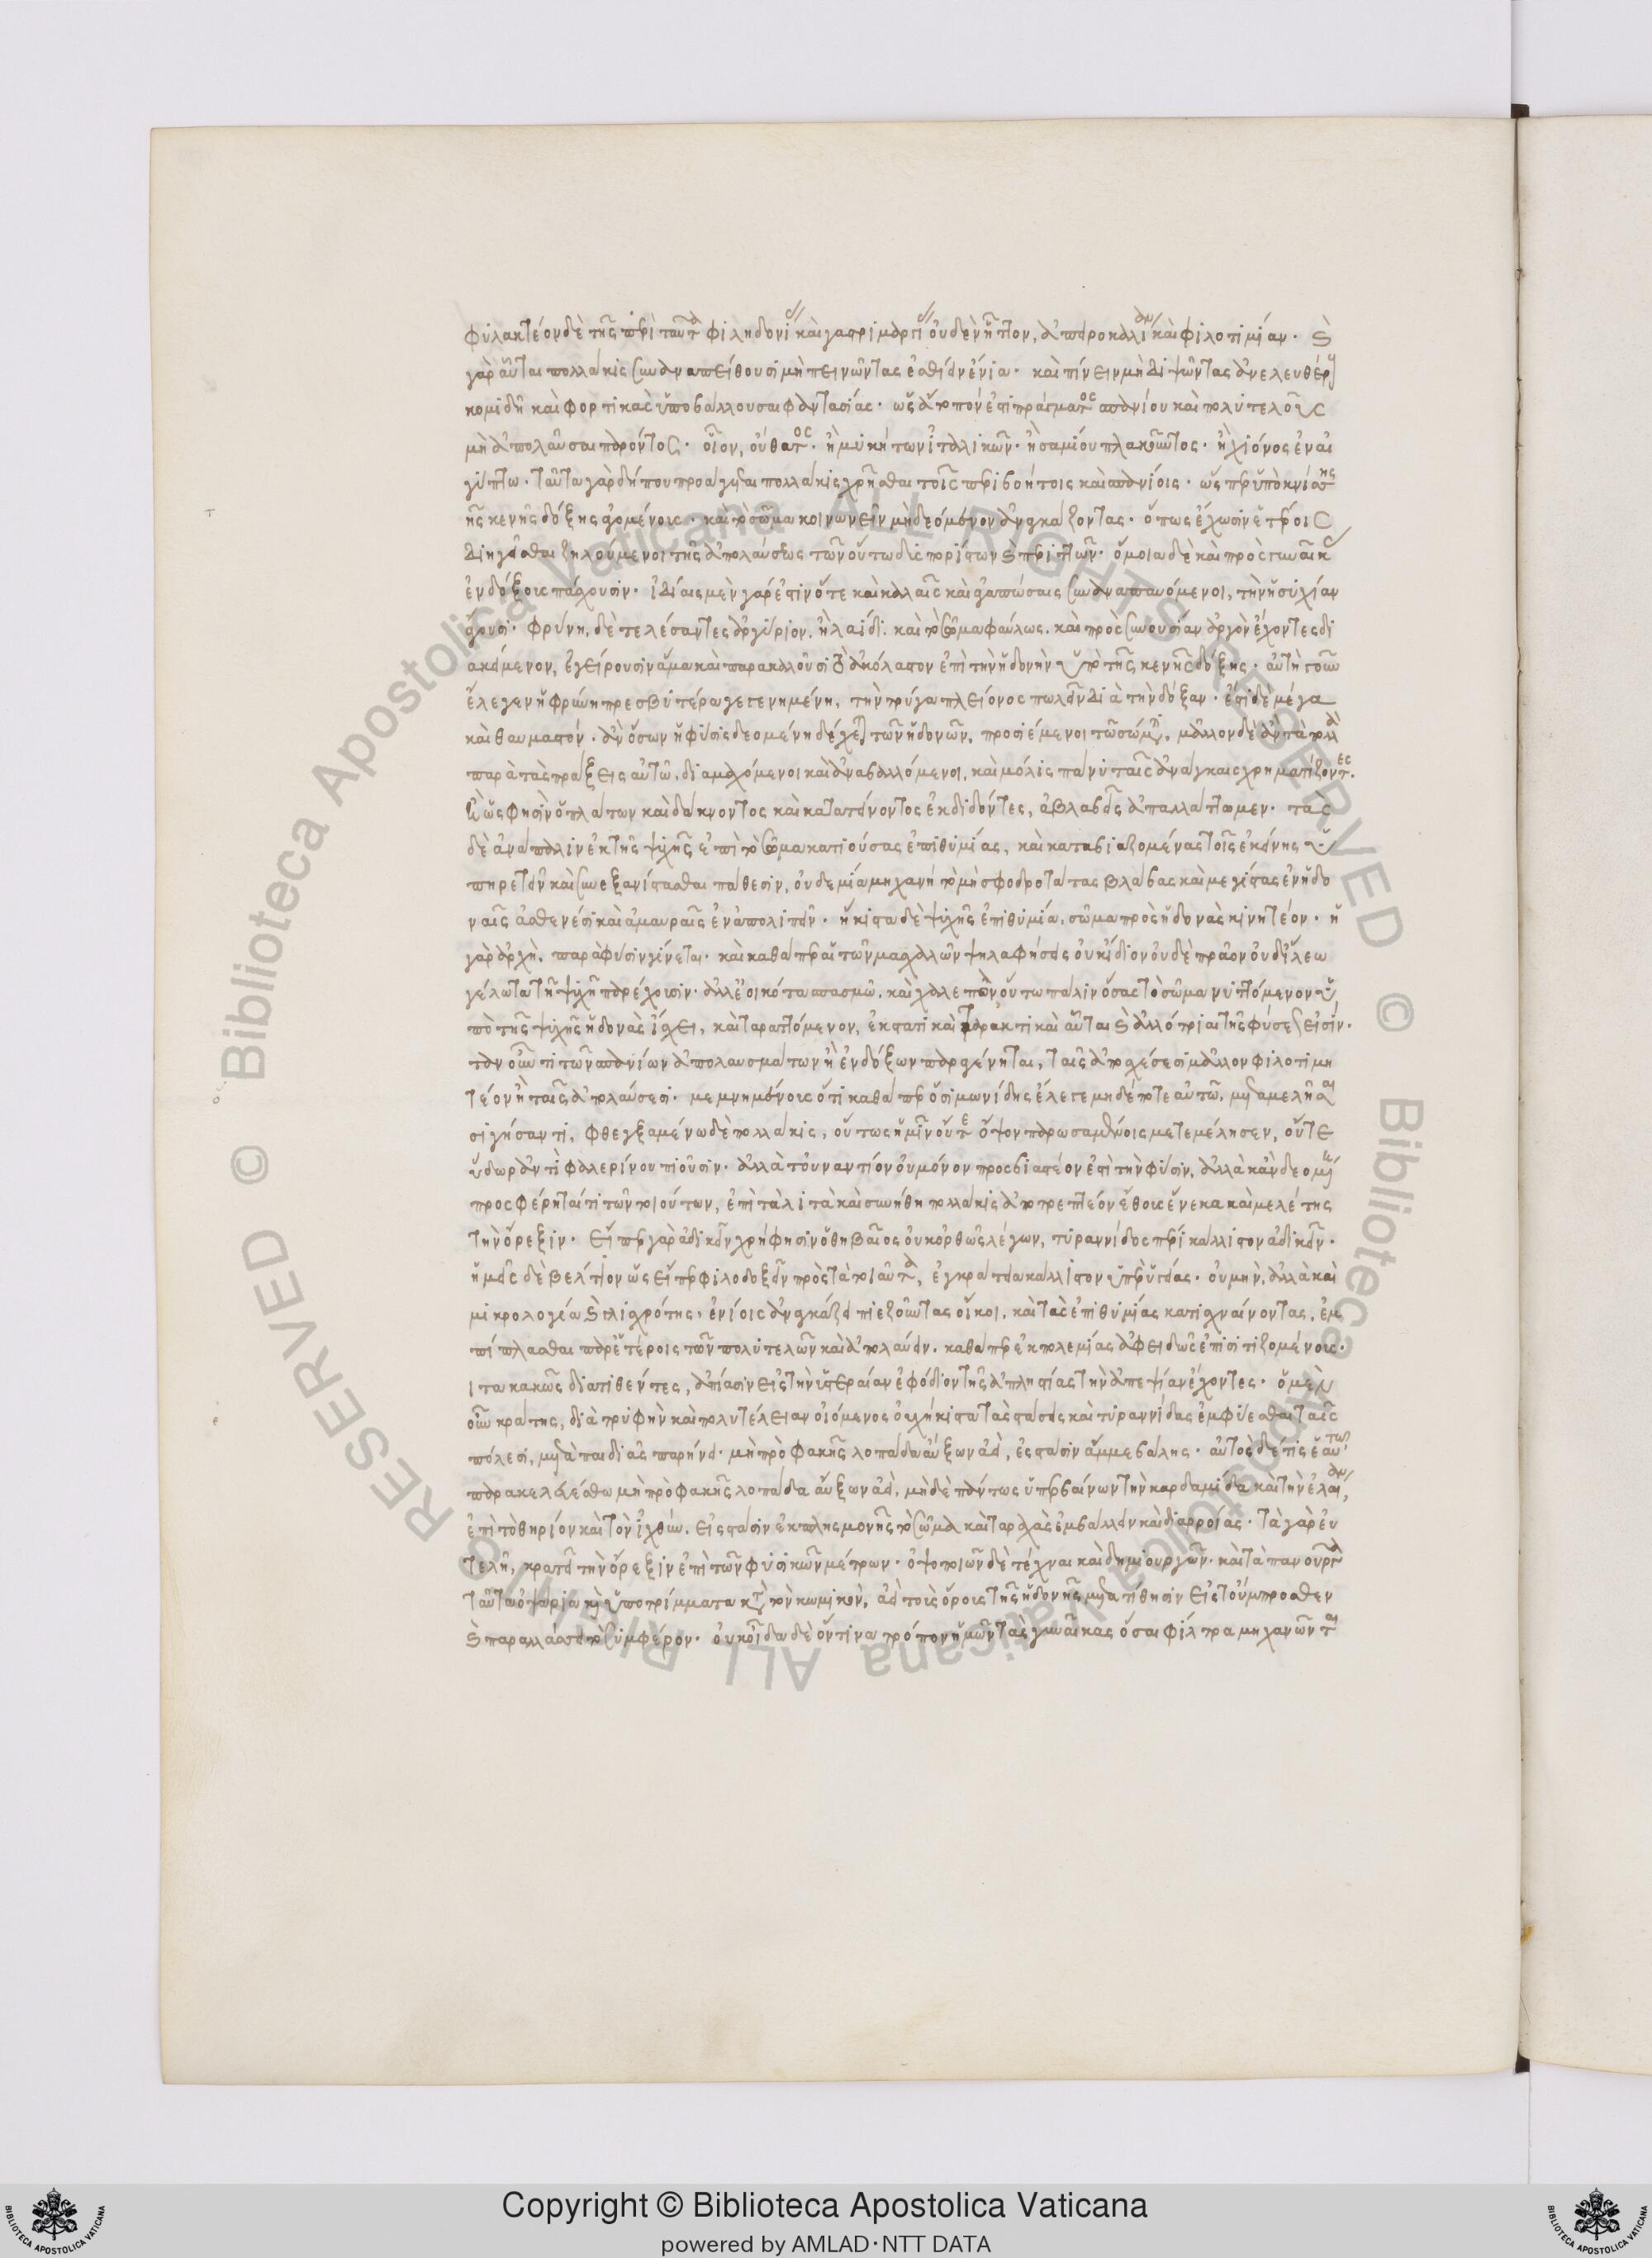 φυλακτέον δὲ τῆς περὶ ταῦτα φιληδονίας καὶ γαστριμαργίας οὐδὲν ἧττον, ἀπειροκαλίαν καὶ φιλοτιμίαν. καὶ
γὰρ αὗται πολλάκις συναναπείθουσι μὴ πεινῶντας ἐσθίειν ἔνια. καὶ πίνειν μὴ διψῶντας ἀνελευθέρους
κομιδῆ καὶ φορτικὰς ὑποβάλλουσαι φαντασίας. ὡς ἄτοπόν ἐστι πράγματος σπανίου καὶ πολυτελοῦς
μὴ ἀπολαῦσαι παρόντος. οἷον, οὔθατος. ἢ μυκήτων ἰταλικῶν. ἢ σαμίου πλακοῦντος. ἢ χιόνος ἐν αἰ
γύπτω. ταῦτα γὰρ δήπου προάγεται πολλάκις χρῆσθαι τοῖς περιβοήτοις καὶ σπανίοις. ὥσπερ ὑπὸ κνίσσης
τῆς κενῆς δόξης ἀγομένους. καὶ τὸ σῶμα κοινωνεῖν μὴ δεόμενον ἀναγκάζοντας. ὅπως ἔχωσιν ἑτέροις
διηγεῖσθαι ζηλούμενοι τῆς ἀπολαύσεως τῶν οὕτω δυσπορίστων καὶ περιττῶν. ὅμοια δὲ καὶ πρὸς γυναῖκας
ἐνδόξους πάσχουσιν. ἰδίαις μὲν γάρ ἐστιν ὅτε καὶ καλαῖς καὶ ἀγαπώσαις συναναπαυόμενοι, τὴν ἡσυχίαν
ἄγουσι. φρύνη, δὲ τελέσαντες ἀργύριον. ἢ λαΐδι. καὶ τὸ σῶμα φαύλως. καὶ πρὸς συνουσίαν ἀργὸν ἔχοντες δι
ακείμενον, ἐγείρουσιν ἅμα καὶ παρακαλοῦσι τὸ ἀκόλαστον ἐπὶ τὴν ἡδονὴν ὑπὸ τῆς κενῆς δόξης. αὐτὴ γοῦν
ἔλεγεν ἡ φρύνη πρεσβυτέρα γεγενημένη, τὴν τρύγα πλείονος πωλεῖν διὰ τὴν δόξαν. ἔστι δὲ μέγα
καὶ θαυμαστόν. ἂν ὅσων ἡ φύσις δεομένη δέχεται τῶν ἡδονῶν, προσιέμενοι τῶ σώματι, μᾶλλον δὲ ἂν τὰ πολλὰ
παρὰ τὰς πράξεις αὐτῶ. διαμαχόμενοι καὶ ἀναβαλλόμενοι, καὶ μόλις πάνυ ταῖς ἀνάγκαις χρηματίζοντες.
ἢ ὥς φησιν ὁ πλάτων καὶ δάκνοντος καὶ κατατείνοντος ἐκδιδόντες, ἀβλαβεῖς ἀπαλλάττωμεν. τὰς
δὲ ἀνάπαλιν ἐκ τῆς ψυχῆς ἐπὶ τὸ σῶμα κατιούσας ἐπιθυμίας, καὶ καταβιαζομένας τοῖς ἐκείνης ὑ
πηρετεῖν καὶ συνεξανίστασθαι πάθεσιν, οὐδεμία μηχανή τὸ μὴ σφοδροτάτας βλάβας καὶ μεγίστας ἐν ἡδο
ναῖς ἀσθενέσι καὶ ἀμαυραῖς ἐναπολιπεῖν. ἥκιστα δὲ ψυχῆς ἐπιθυμία, σῶμα πρὸς ἡδονὰς κινητέον. ἡ
γὰρ ἀρχὴ, παρὰ φύσιν γίνεται. καὶ καθάπερ αἱ τῶν μασχαλῶν ψηλαφήσεις οὐκ ἴδιον οὐδὲ πρᾶον οὐδὲ ἵλεω
γέλωτα τῆ ψυχῆ παρέχουσιν. ἀλλ' ἐοικότα σπασμῶ. καὶ χαλεπὸν οὕτω πάλιν ὅσας τὸ σῶμα νυττόμενον ὑ
πὸ τῆς ψυχῆς ἡδονὰς ἴσχει, καὶ ταραττόμενον, ἐκστατικαὶ καὶ ταρακτικαὶ αὗται καὶ ἀλλότριαι τῆς φύσεώς εἰσιν.
ὅταν οὖν τι τῶν σπανίων ἀπολαυσμάτων ἢ ἐνδόξων παραγένηται, ταῖς ἀποσχέσεσι μᾶλλον φιλοτιμη
τέον ἢ ταῖς ἀπολαύσεσι. μεμνημένους ὅτι καθάπερ ὁ σιμωνίδης ἔλεγε μηδέποτε αὐτῶ, μεταμελῆσαι
σιγήσαντι, φθεγξαμένω δὲ πολλάκις, οὕτως ἡμῖν οὔτε ὄψον παρωσαμένοις μετεμέλησεν, οὔτε
ὕδωρ ἀντὶ φαλερίνου πιοῦσιν. ἀλλὰ τοὐναντίον οὐ μόνον προσβιαστέον ἐστὶ τὴν φύσιν, ἀλλὰ κἂν δεομένη
προσφέρηταί τι τῶν τοιούτων, ἐπὶ τὰ λιτὰ καὶ συνήθη πολλάκις ἀποτρεπτέον ἔθους ἕνεκα καὶ μελέτης
τὴν ὄρεξιν. εἴπερ γὰρ ἀδικεῖν χρή φησὶν ὁ θηβαῖος οὐκ ὀρθῶς λέγων, τυραννίδος πέρι κάλλιστον ἀδικεῖν.
ἡμεῖς δὲ βέλτιον ὡς εἴπερ φιλοδοξεῖν πρὸς τὰ τοιαῦτα, ἐγκρατεία κάλλιστον ὑπὲρ ὑγείας. οὐ μὴν, ἀλλὰ καὶ
μικρολογία καὶ γλισχρότης, ἐνίους ἀναγκάζει πιεζοῦντας οἴκοι. καὶ τὰς ἐπιθυμίας κατισχναίνοντας, ἐμ
πίπλασθαι παρ' ἑτέροις τῶν πολυτελῶν καὶ ἀπολαύειν. καθάπερ ἐκ πολεμίας ἀφειδῶς ἐπισιτιζομένους.
εἶτα κακῶς διατιθέντες, ἀπίασιν εἰς τὴν ὑστεραίαν ἐφόδιον τῆς ἀπληστίας τὴν ἀπεψίαν ἔχοντες. ὁ μὲν
οὖν κράτης, διὰ τρυφὴν καὶ πολυτέλειαν οἰόμενος οὐχ ἥκιστα τὰς στάσεις καὶ τυραννίδας ἐμφύεσθαι ταῖς
πόλεσι, μετὰ παιδιᾶς παρήνει. μὴ πρὸ φακῆς λοπάδα αὔξων ἀεὶ, ἐς στάσιν ἄμμε βάλης. αὐτὸς δέ τις ἑαυτῶ
παρακελευέσθω μὴ πρὸ φακῆς λοπάδα αὔξων ἀεὶ, μηδὲ πάντως ὑπερβαίνων τὴν καρδαμίδα καὶ τὴν ἐλαίαν,
ἐπὶ τὸ θηρίον καὶ τὸν ἰχθύν. εἰς στάσιν ἐκ πλησμονῆς τὸ σῶμα καὶ ταραχὰς ἐμβάλλειν καὶ διαρροίας. τὰ γὰρ εὐ
τελῆ, κρατεῖ τὴν ὄρεξιν ἐπὶ τῶν φυσικῶν μέτρων. ὀψοποιῶν δὲ τέχναι καὶ δημιουργῶν. καὶ τὰ πανοῦργα
ταῦτα ὀψάρια καὶ ὑποτρίμματα κατὰ τὸν κωμικὸν, ἀεὶ τοὺς ὅρους τῆς ἡδονῆς μετατίθησιν εἰς τοὔμπροσθεν
καὶ παραλλάσσει τὸ συμφέρον. οὐκ οἶδα δὲ ὅντινα τρόπον ἡμῶν τὰς γυναῖκας ὅσαι φίλτρα μηχανῶνται
Copyright © Biblioteca Apostolica Vaticana
powered by AMLAD·NTT DATA